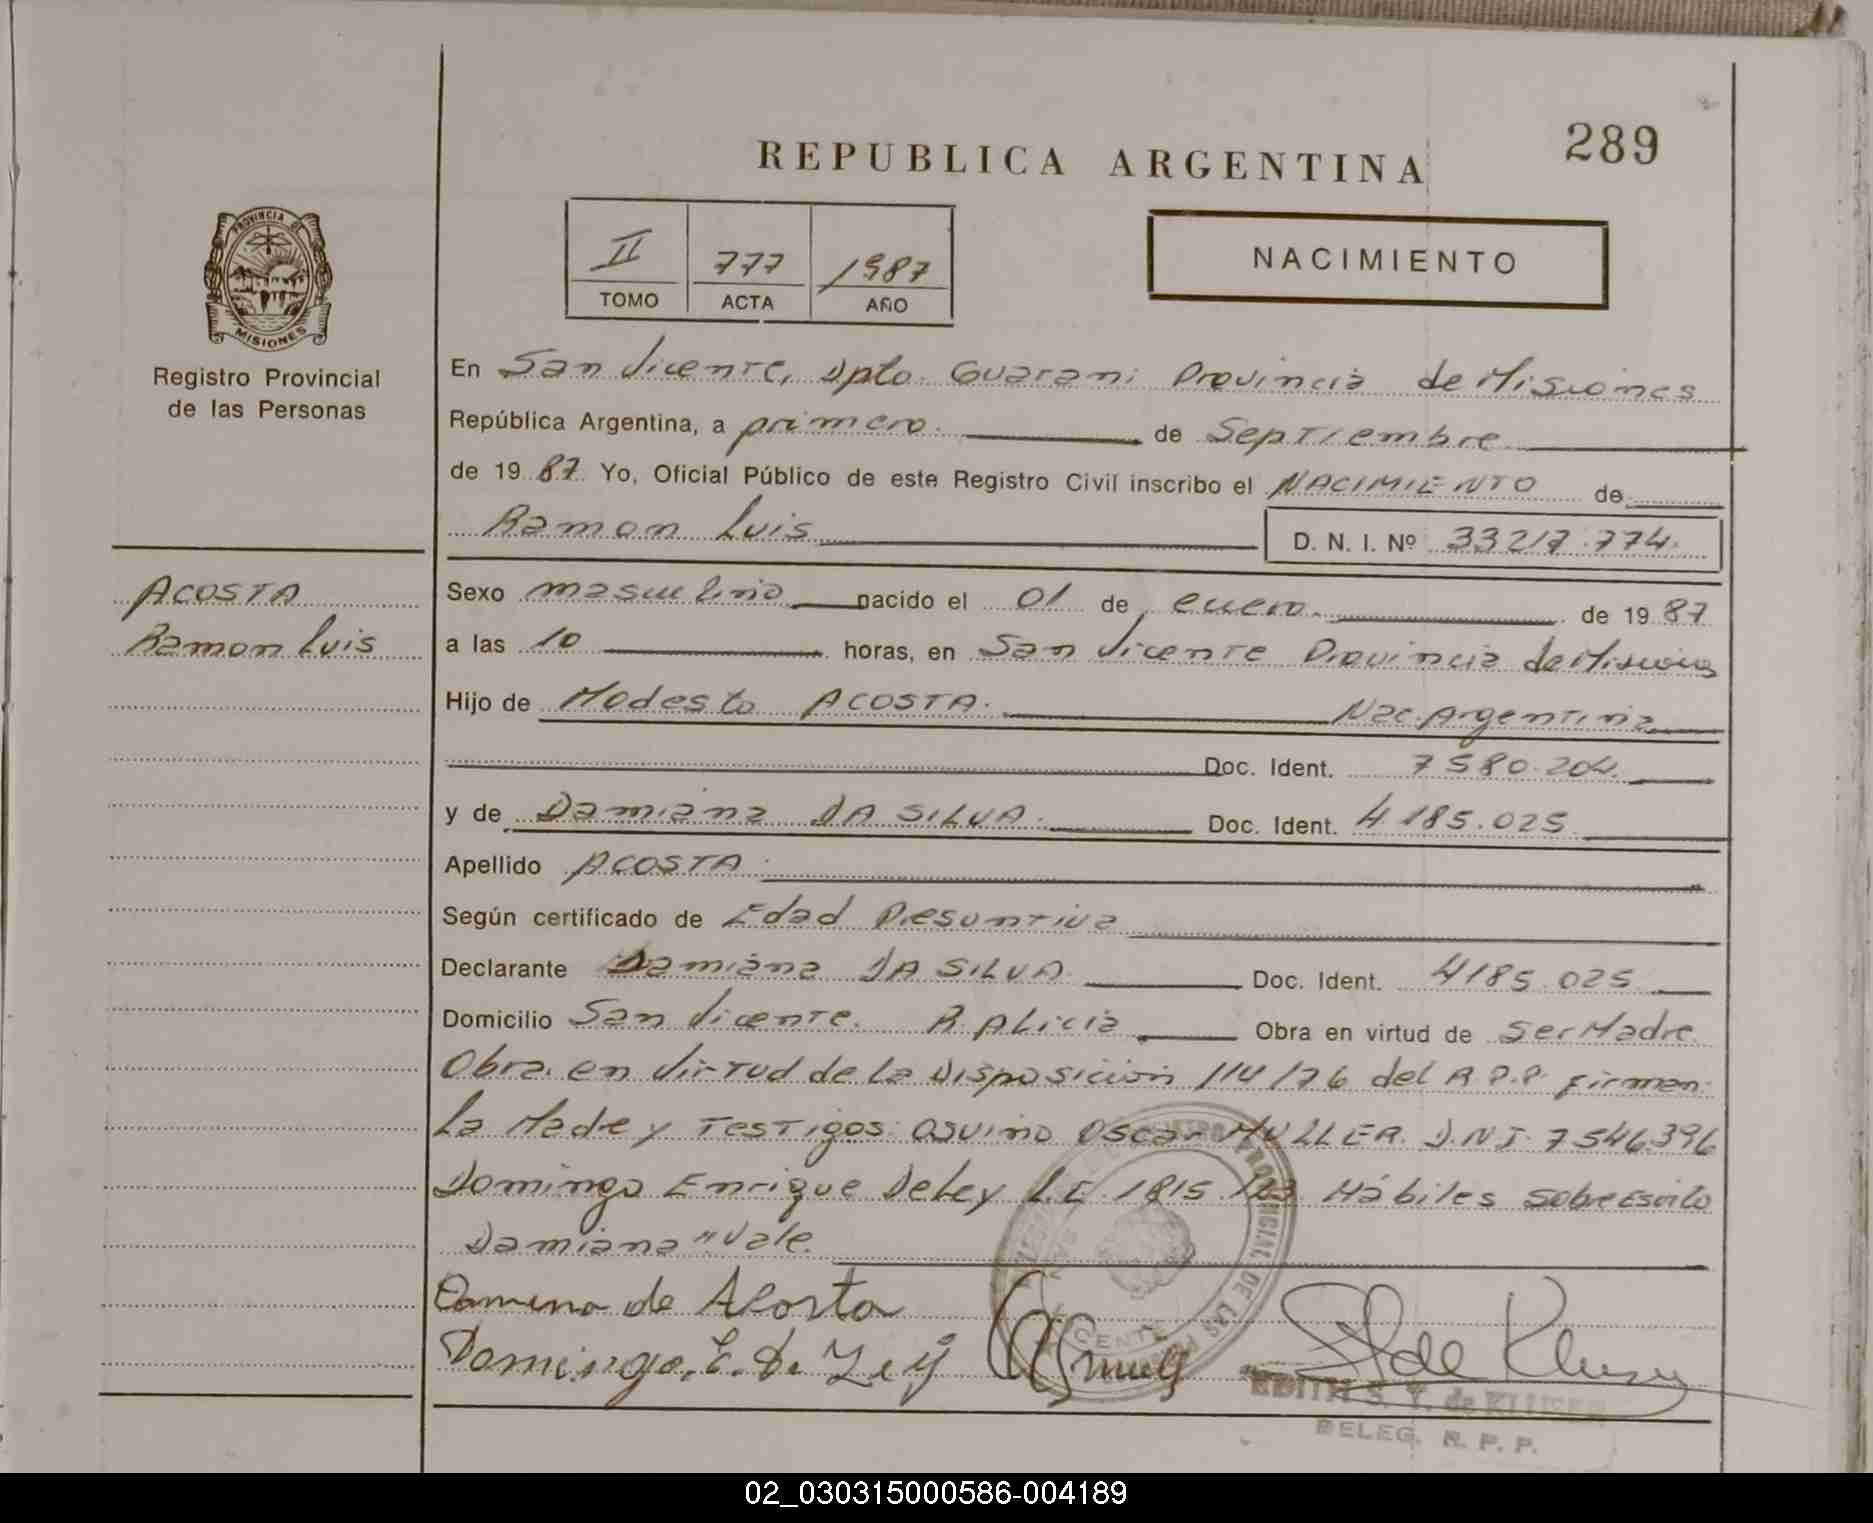 289
REPUBLICA ARGENTINA
II 777 1987
TOMO ACTA AÑO
NACIMIENTO
PROVINCIA DE
MISIONES
Registro Provincial
de las Personas
En San Vicente, Dpto. Guarani Provincia de Misiones
República Argentina, a primero. de Septiembre
de 19 87 Yo, Oficial Público de este Registro Civil inscribo el NACIMIENTO de
Ramon Luis D. N. I. Nº 33217.774.
ACOSTA
Ramon Luis
Sexo masculino nacido el 01 de enero. de 19 87
a las 10 horas, en San Vicente Provincia de Misiones
Hijo de Modesto ACOSTA. Nac. Argentina
Doc. Ident. 7580.204.
y de Damiana DA SILVA. Doc. Ident. 4185.025
Apellido ACOSTA.
Según certificado de Edad Presuntiva
Declarante Damiana DA SILVA Doc. Ident. 4185.025
Domicilio San Vicente. P. Alicia Obra en virtud de ser Madre.
Obra. en virtud de la Disposición 114/76 del R.P.P. firman.
La Madre y Testigos: Osvino Oscar MULLER. D.N.I. 7546.396
Domingo Enrique DeLey L.E. 1815 Hábiles Sobre Escrito
Damiana" Vale.
de Acosta
Domingo. E. De Ley
EDITH S. Y. de KLUSER
DELEG. R. P. P.
02_030315000586-004189